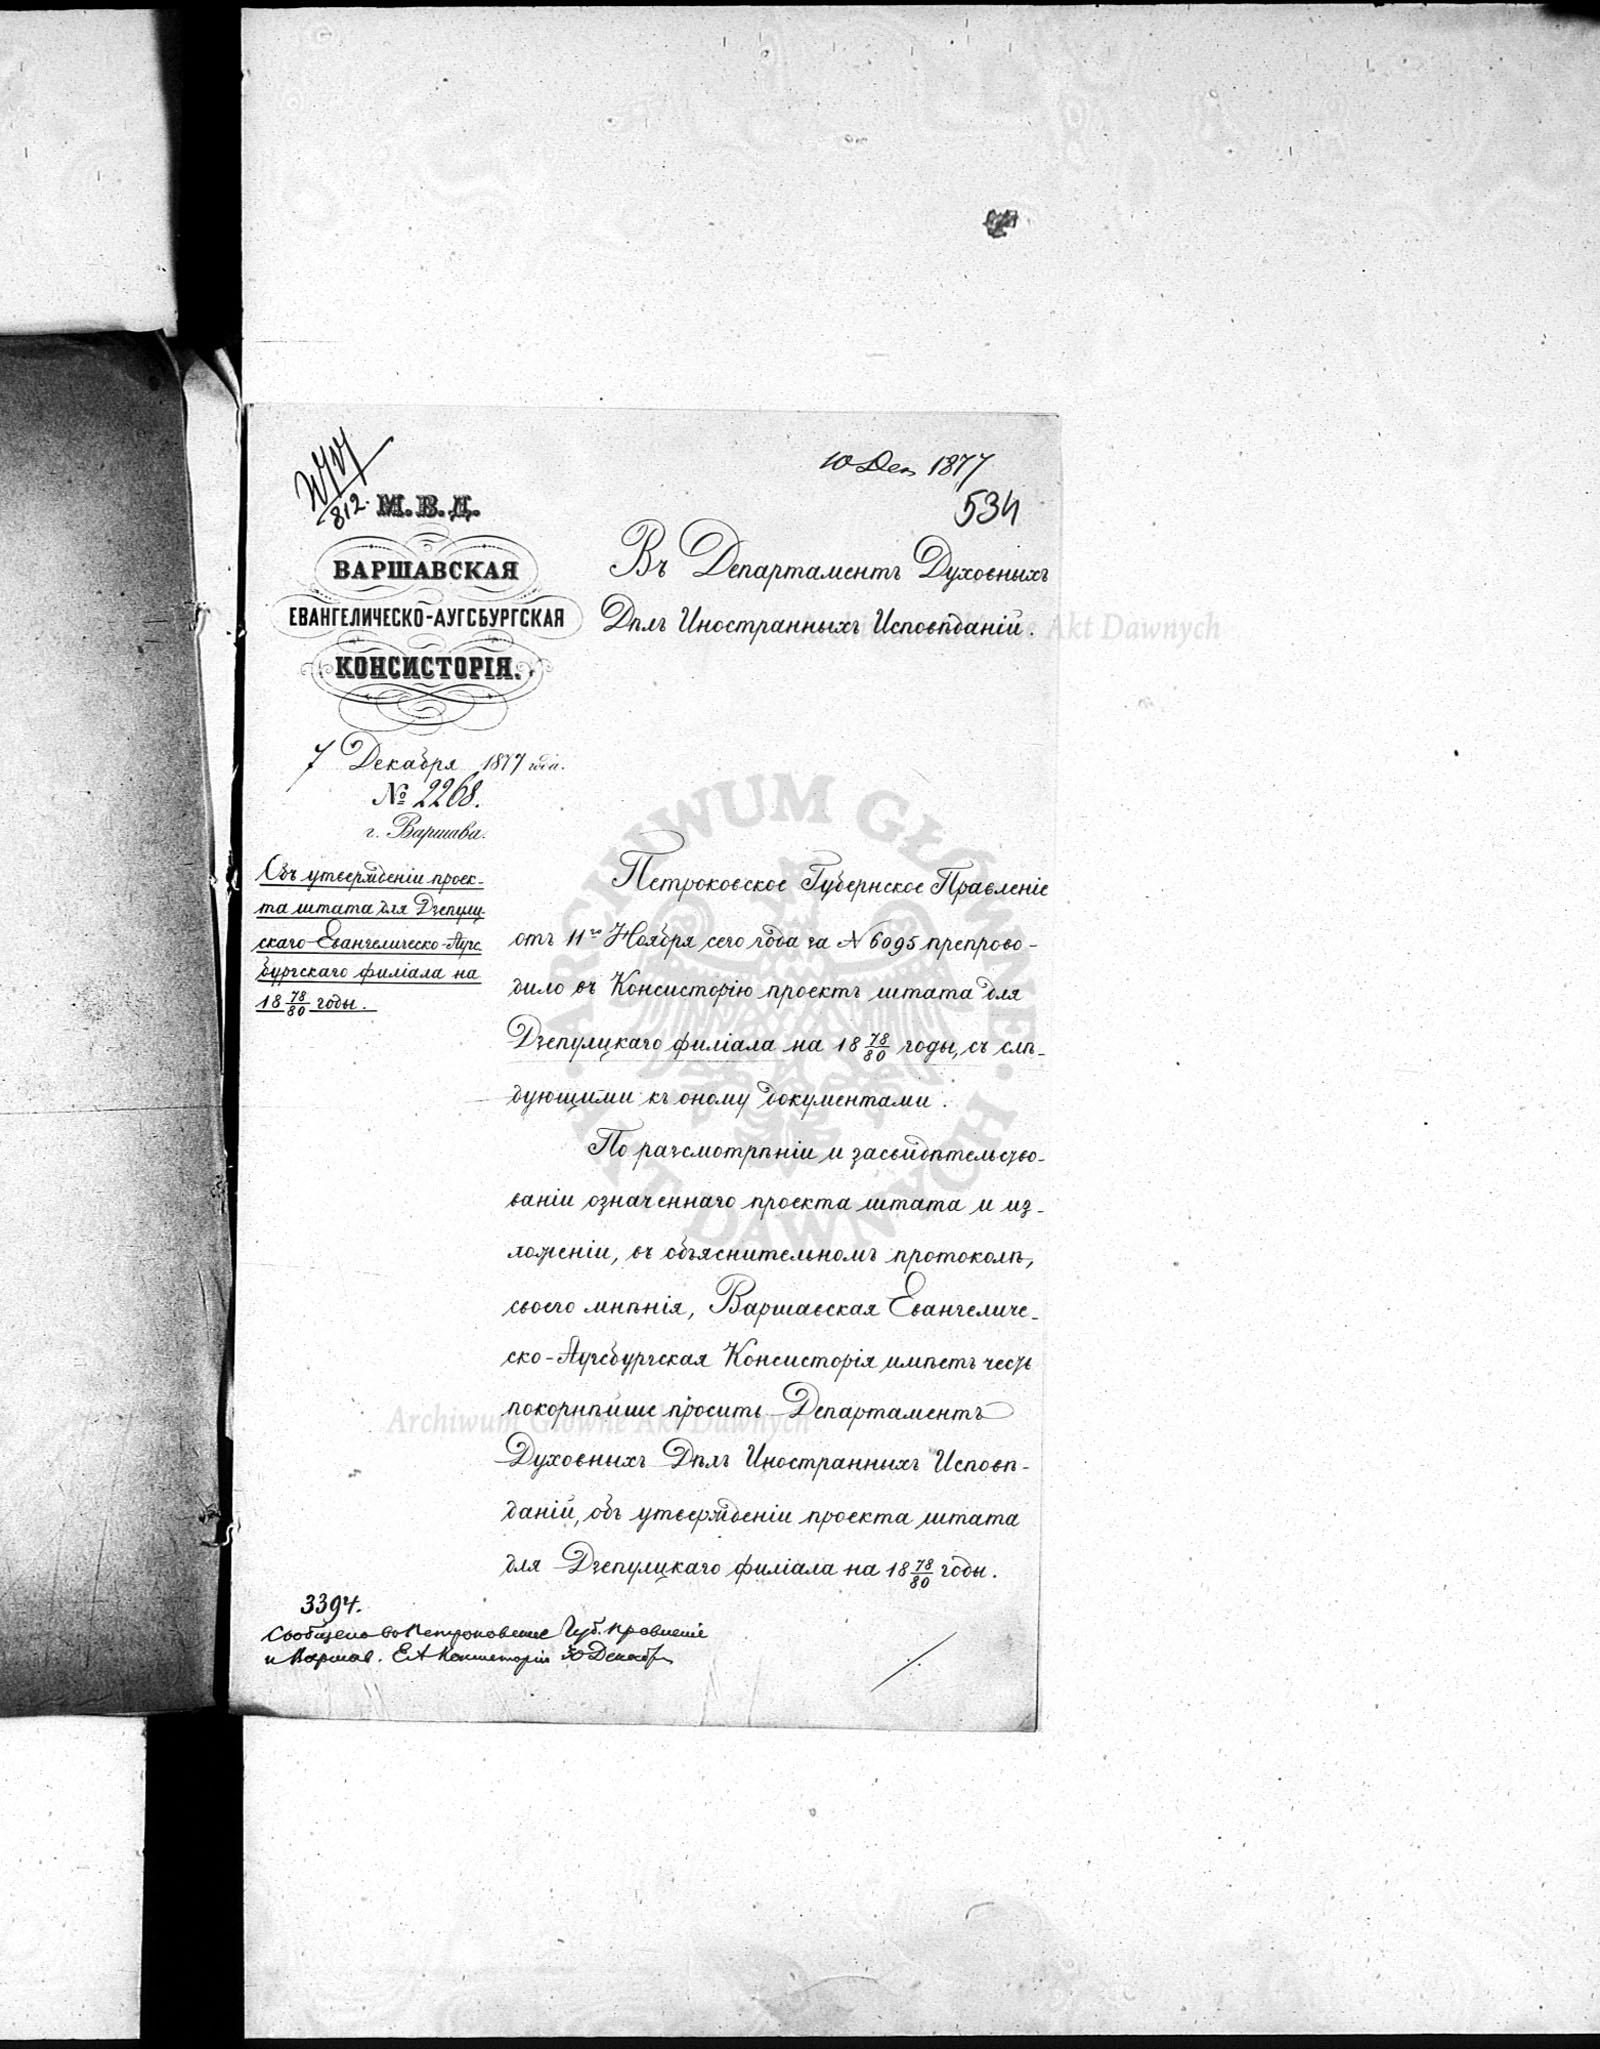 10 Дек 1877
534
812.
М. В. Д.
ВАРШАВСКАЯ
ЕВАНГЕЛИЧЕСКО-АУГСБУРГСКАЯ
КОНСИСТОРІЯ.
7 Декабря 1877 года.
№ 2268.
г. Варшава.
Объ утвержденіи проек-
та штата для Дзепулц-
скаго Евангелическо-Аугс
бургскаго филіала на
18 78/80 годы.
Въ Департаментъ Духовныхъ
Дѣлъ Иностранныхъ Исповѣданій.
Петроковское Губернское Правленіе
отъ 11го Ноября сего года за № 6095 препрово-
дило въ Консисторію проектъ штата для
Дзепулцкаго филіала на 18 78/80 годы, съ слѣ-
дующими къ оному документами.
По разсмотрѣніи и засвидѣтельство-
ваніи означеннаго проекта штата и из-
ложеніи, въ объяснительномъ протоколѣ,
своего мнѣнія, Варшавская Евангеличе-
ско-Аугсбургская Консисторія имѣетъ честь
покорнѣйше просить Департаментъ
Духовныхъ Дѣлъ Иностранныхъ Исповѣ-
даній, объ утвержденіи проекта штата
для Дзепулцкаго филіала на 18 78/80 годы.
3394.
Сообщено въ Петроковское Губ. Правленіе
и Варшав. ЕА Консисторіи 30 Декабр
Archiwum Główne Akt Dawnych
ARCHIWUM GŁÓWNE AKT DAWNYCH
Archiwum Główne Akt Dawnych